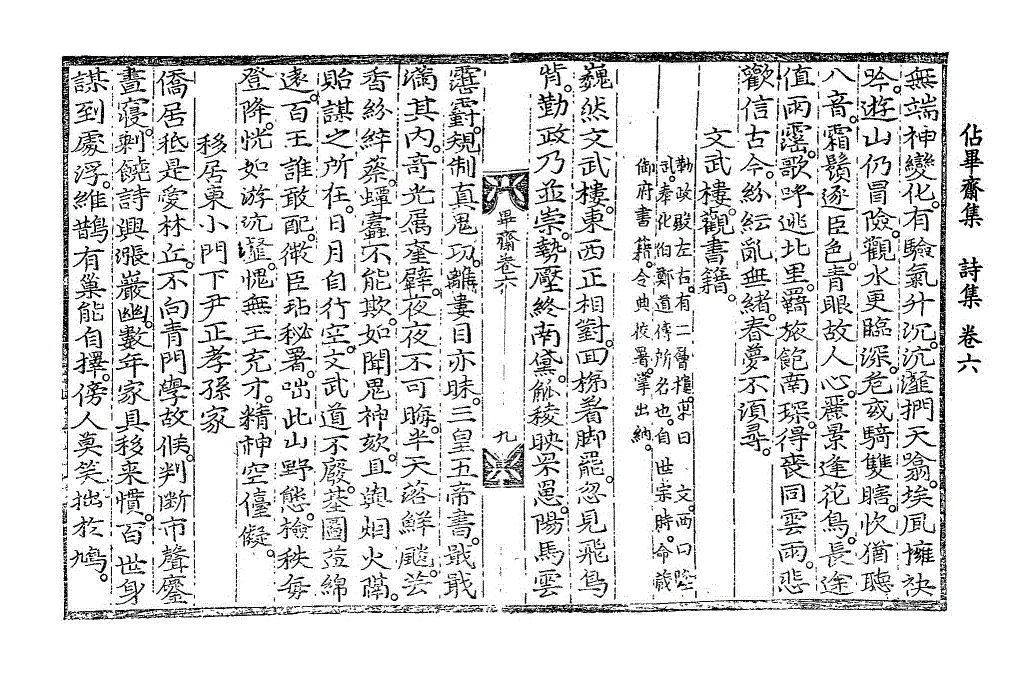 佔畢齋集 詩集 卷六
無端神變化。有驗氣升沉。沉瀣捫天翕。埃風擁袂
吟。遊山仍冒險。觀水更臨深。危或騎雙瞎。吹猶聽
八音。霜鬚逐臣色。青眼故人心。麗景逢花鳥。長途
值雨霪。歌呼逃北里。羇旅飽南琛。得喪同雲雨。悲
歡信古今。紛紜亂無緒。春夢不須尋。
文武樓。觀書籍。
勤政殿左右。有二層樓。東曰 文。西曰隆
武。奉化伯鄭道傳所名也。自 世宗時。命藏
御府書籍。令典校署。掌出納。
巍然文武樓。東西正相對。回梯着脚罷。忽見飛鳥
背。勤政乃並崇。勢壓終南黛。觚稜映罘罳。陽馬雲
畢齋卷六
九
靉霴。規制眞鬼功。離婁目亦昧。三皇五帝書。戢戢
滿其內。奇光厲奎壁。夜夜不可晦。半天落鮮飈。芸
香紛綷蔡。蟫蠧不能欺。如聞鬼神欬。且與烟火隔。
貽謀之所在。日月自行空。文武道不廢。基圖益綿
遠。百王誰敢配。微臣玷秘署。咄此山野態。檢秩每
登降。恍如游沆瀣。愧無王充才。精神空儓儗。
移居東小門下尹正孝孫家
僑居秪是愛林丘。不向青門學故侯。判斷市聲鏖
晝寢。剩饒詩興漲巖幽。數年家具移來慣。百世身
謀到處浮。維鵲有巢能自擇。傍人莫笑拙於鳩。